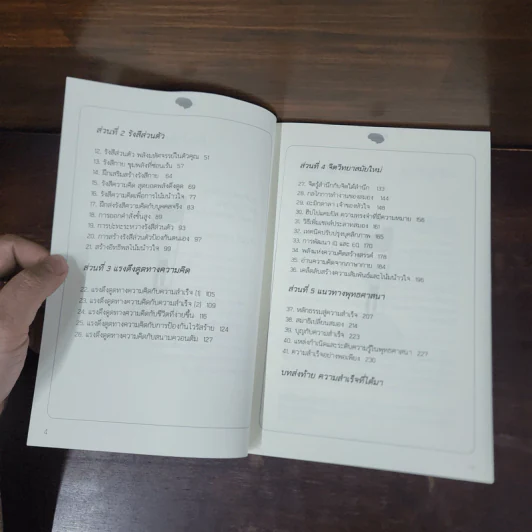 ส่วนที่ 2 รังสีส่วนตัว
12. รังสีส่วนตัว พลังมหัศจรรย์ในตัวคุณ 51
13. รังสีกาย: ขุมพลังที่ซ่อนเร้น 57
14. ฝึกเสริมสร้างรังสีกาย 64
15. รังสีความคิด สุดยอดพลังดึงดูด 69
16. รังสีความคิดเพื่อการโน้มน้าวใจ 77
17. ฝึกส่งรังสีความคิดกับบุคคลจริง 83
18. การออกคำสั่งขั้นสูง 89
19. การปะทะระหว่างรังสีส่วนตัว 93
20. การสร้างรังสีส่วนตัวป้องกันตนเอง 97
21. สร้างอิทธิพลโน้มน้าวใจ 99
ส่วนที่ 3 แรงดึงดูดทางความคิด
22. แรงดึงดูดทางความคิดกับความสำเร็จ (1) 105
23. แรงดึงดูดทางความคิดกับความสำเร็จ (2) 109
24. แรงดึงดูดทางความคิดกับชีวิตที่ง่ายขึ้น 116
25. แรงดึงดูดทางความคิดกับการป้องกันไวรัสร้าย 124
26. แรงดึงดูดทางความคิดกับสนามควอนตัม 127
ส่วนที่ 4 จิตวิทยาสมัยใหม่
27. จิตรู้สำนึกกับจิตใต้สำนึก 133
28. กลไกการทำงานของสมอง 144
29. อะมิกดาลา เจ้าของหัวใจ 148
30. ฮิปโปแคมปัส ความทรงจำที่มีความหมาย 158
31. วิธีเพิ่มเซลล์ประสาทสมอง 161
32. เทคนิคปรับปรุงบุคลิกภาพ 165
33. การพัฒนา IQ และ EQ 175
34. พลังแห่งความคิดสร้างสรรค์ 179
35. อ่านความคิดจากภาษากาย 184
36. เคล็ดลับสร้างความสัมพันธ์และโน้มน้าวใจ 195
ส่วนที่ 5 แนวทางพุทธศาสนา
37. หลักธรรมสู่ความสำเร็จ 207
38. สมาธิเปลี่ยนสมอง 214
39. บุญกับความสำเร็จ 223
40. แหล่งกำเนิดและระดับความรู้ในพุทธศาสนา 227
41. ความสำเร็จอย่างพอเพียง 230
บทส่งท้าย ความสำเร็จที่ได้มา